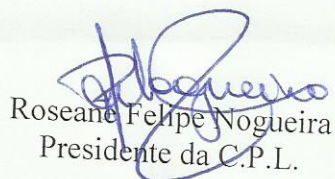 Roseane Felipe Nogueira
Presidente da C.P.L.